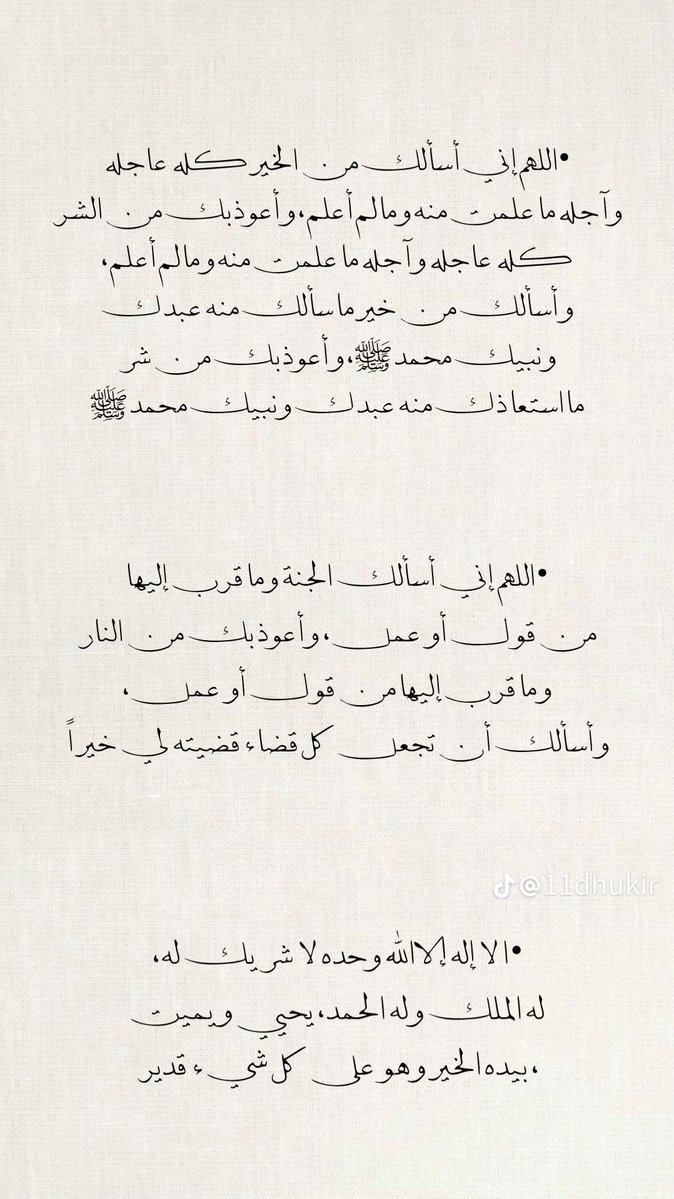 •اللهم إني أسألك من الخير كله عاجله
وآجله ما علمت منه وما لم أعلم، وأعوذ بك من الشر
كله عاجله وآجله ما علمت منه وما لم أعلم،
وأسألك من خير ما سألك منه عبدك
ونبيك محمد ﷺ، وأعوذ بك من شر
ما استعاذك منه عبدك ونبيك محمد ﷺ
•اللهم إني أسألك الجنة وما قرب إليها
من قول أو عمل، وأعوذ بك من النار
وما قرب إليها من قول أو عمل،
وأسألك أن تجعل كل قضاء قضيته لي خيراً
@11dhukir
•الا إله إلا الله وحده لا شريك له،
له الملك وله الحمد، يحيي ويميت
،بيده الخير وهو على كل شيء قدير